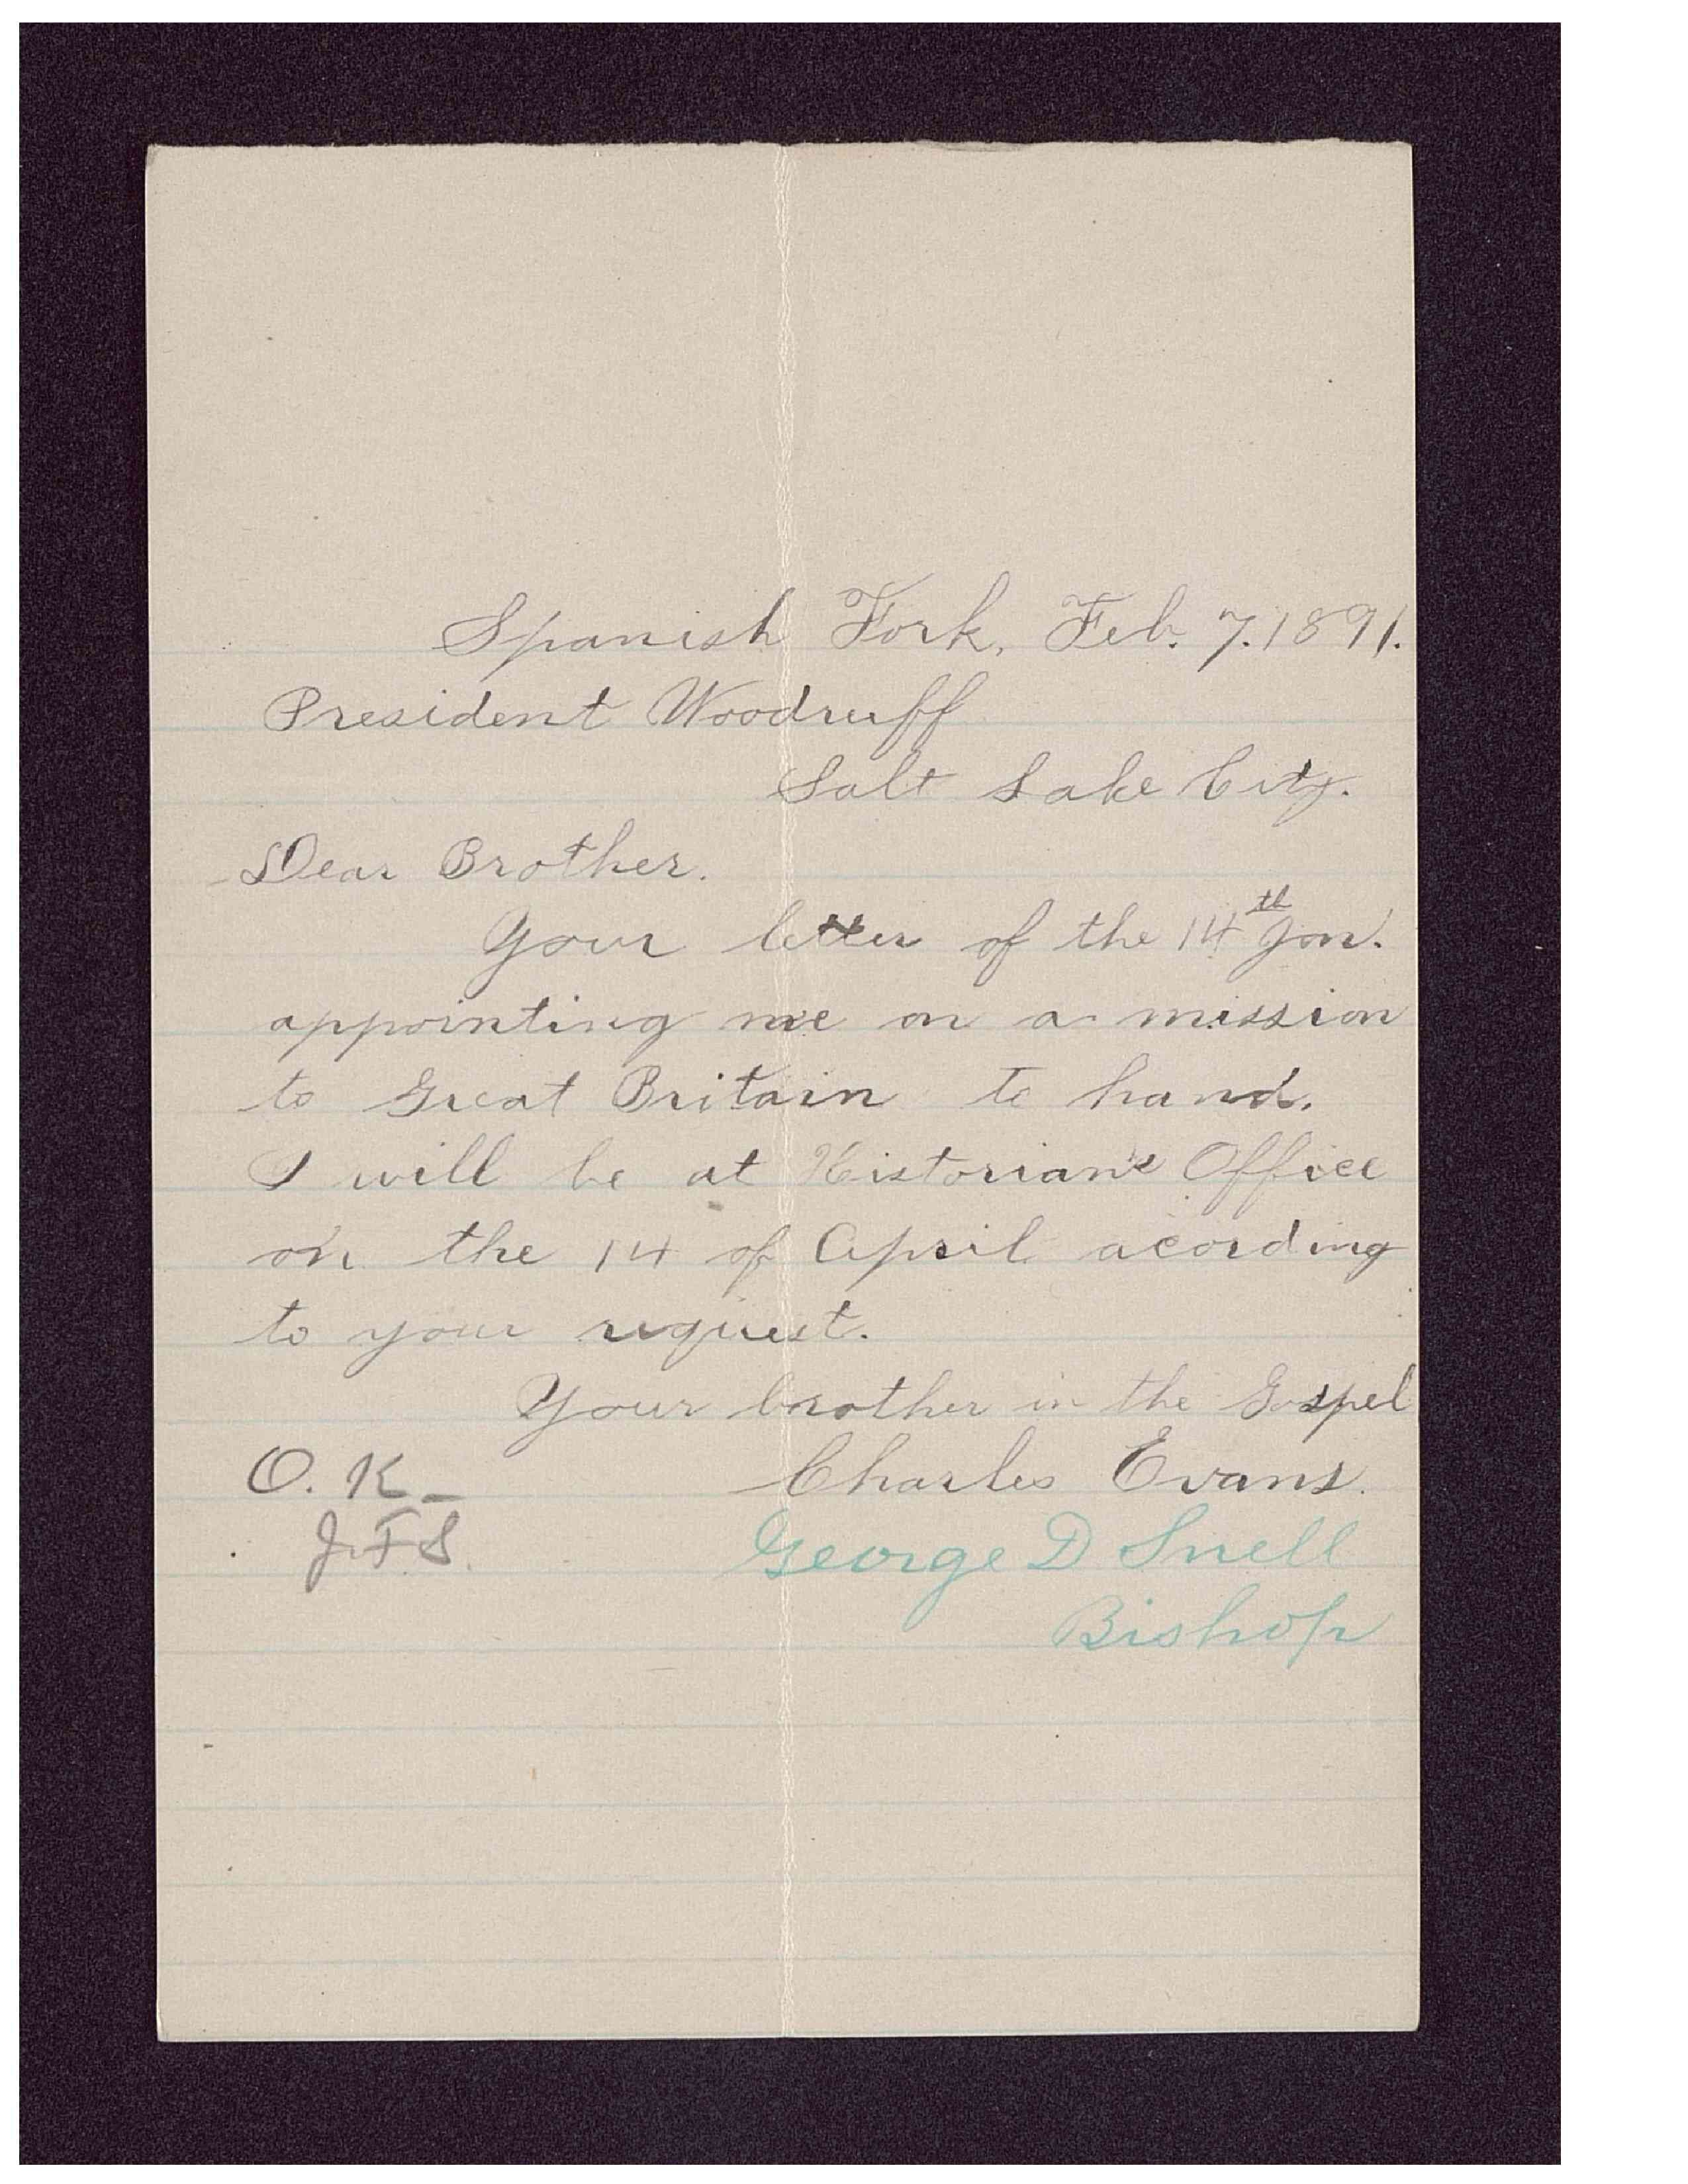 Spanish Fork, Feb. 7. 1891.
President Woodruff
Salt Lake City.
Dear Brother.
Your letter of the 14th Jan.
appointing me on a mission
to Great Britain to hand.
I will be at Historian's Office
on the 14 of April acording
to your request.
Your brother in the Gospel
O. K_ Charles Evans.
J. F S. George D Snell
Bishop